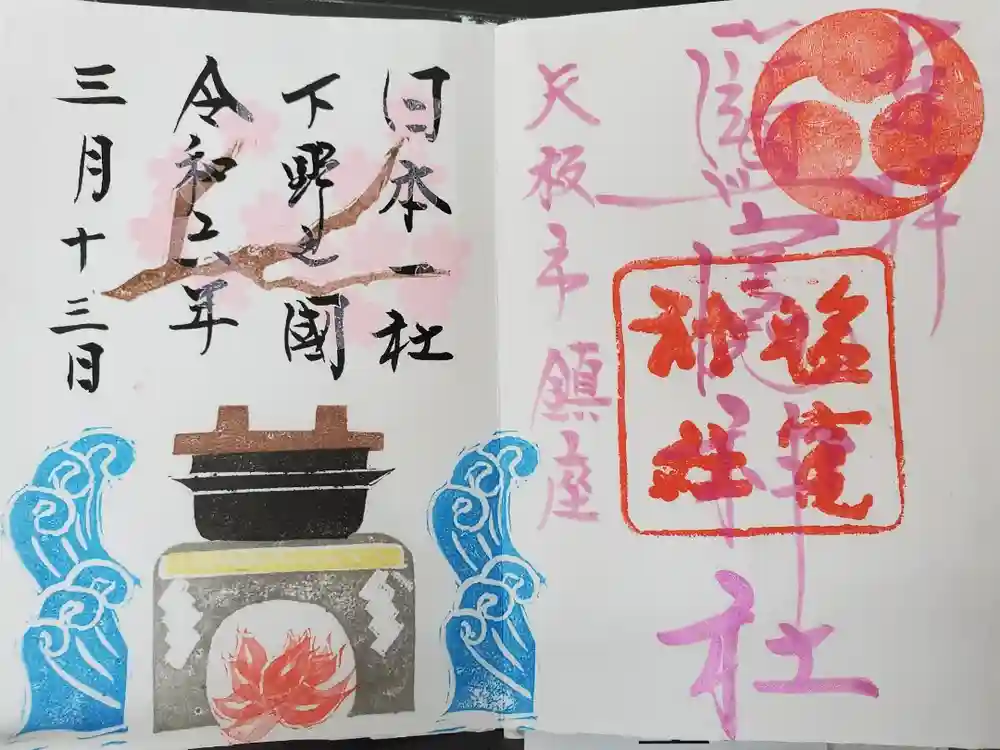 奉拝
塩竈神社
神社
矢板市鎮座
日本一社
下野之國
令和六年
三月十三日